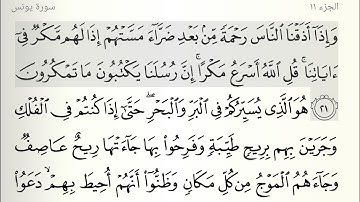 الجزء ١١
سورة يونس
وَإِذَا أَذَقْنَا النَّاسَ رَحْمَةً مِّنۢ بَعْدِ ضَرَّاءَ مَسَّتْهُمْ إِذَا لَهُم مَّكْرٌ فِي
ءَايَاتِنَا ۚ قُلِ اللَّهُ أَسْرَعُ مَكْرًا ۚ إِنَّ رُسُلَنَا يَكْتُبُونَ مَا تَمْكُرُونَ
٢١ هُوَ الَّذِي يُسَيِّرُكُمْ فِي الْبَرِّ وَالْبَحْرِ ۖ حَتَّىٰ إِذَا كُنتُمْ فِي الْفُلْكِ
وَجَرَيْنَ بِهِم بِرِيحٍ طَيِّبَةٍ وَفَرِحُوا بِهَا جَاءَتْهَا رِيحٌ عَاصِفٌ
وَجَاءَهُمُ الْمَوْجُ مِن كُلِّ مَكَانٍ وَظَنُّوا أَنَّهُمْ أُحِيطَ بِهِمْ ۙ دَعَوُا